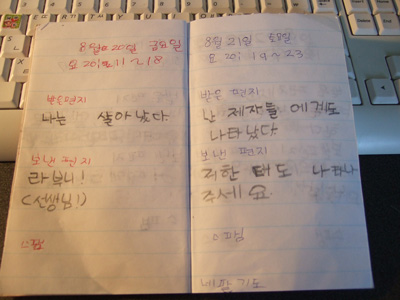 8월 20일 금요일
요 20:11~18
받은편지
나는 살아났다
보낸 편지
라보니!
(선생님!)
8월 21일 토요일
요 20:19~23
받은 편지
난 제자들에게도
나타났다
보낸 편지
저한테도 나타나
주세요